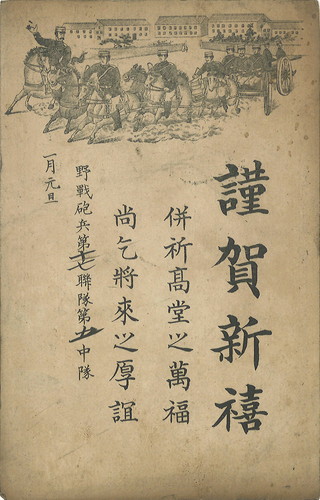 謹賀新禧
併祈髙堂之萬福
尚乞將來之厚誼
野戰砲兵第十七聯隊第五中隊
一月元旦